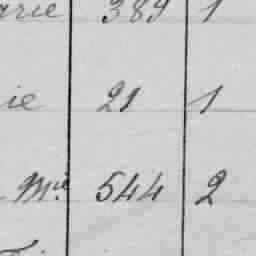 arie 389 1
ie 21 1
Mie 544 2